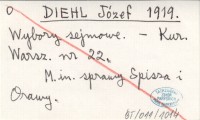 DIEHL Józef 1919.
Wybory sejmowe. – Kur.
Warsz. nr 22.
M.in. sprawy Spisza i
Orawy.